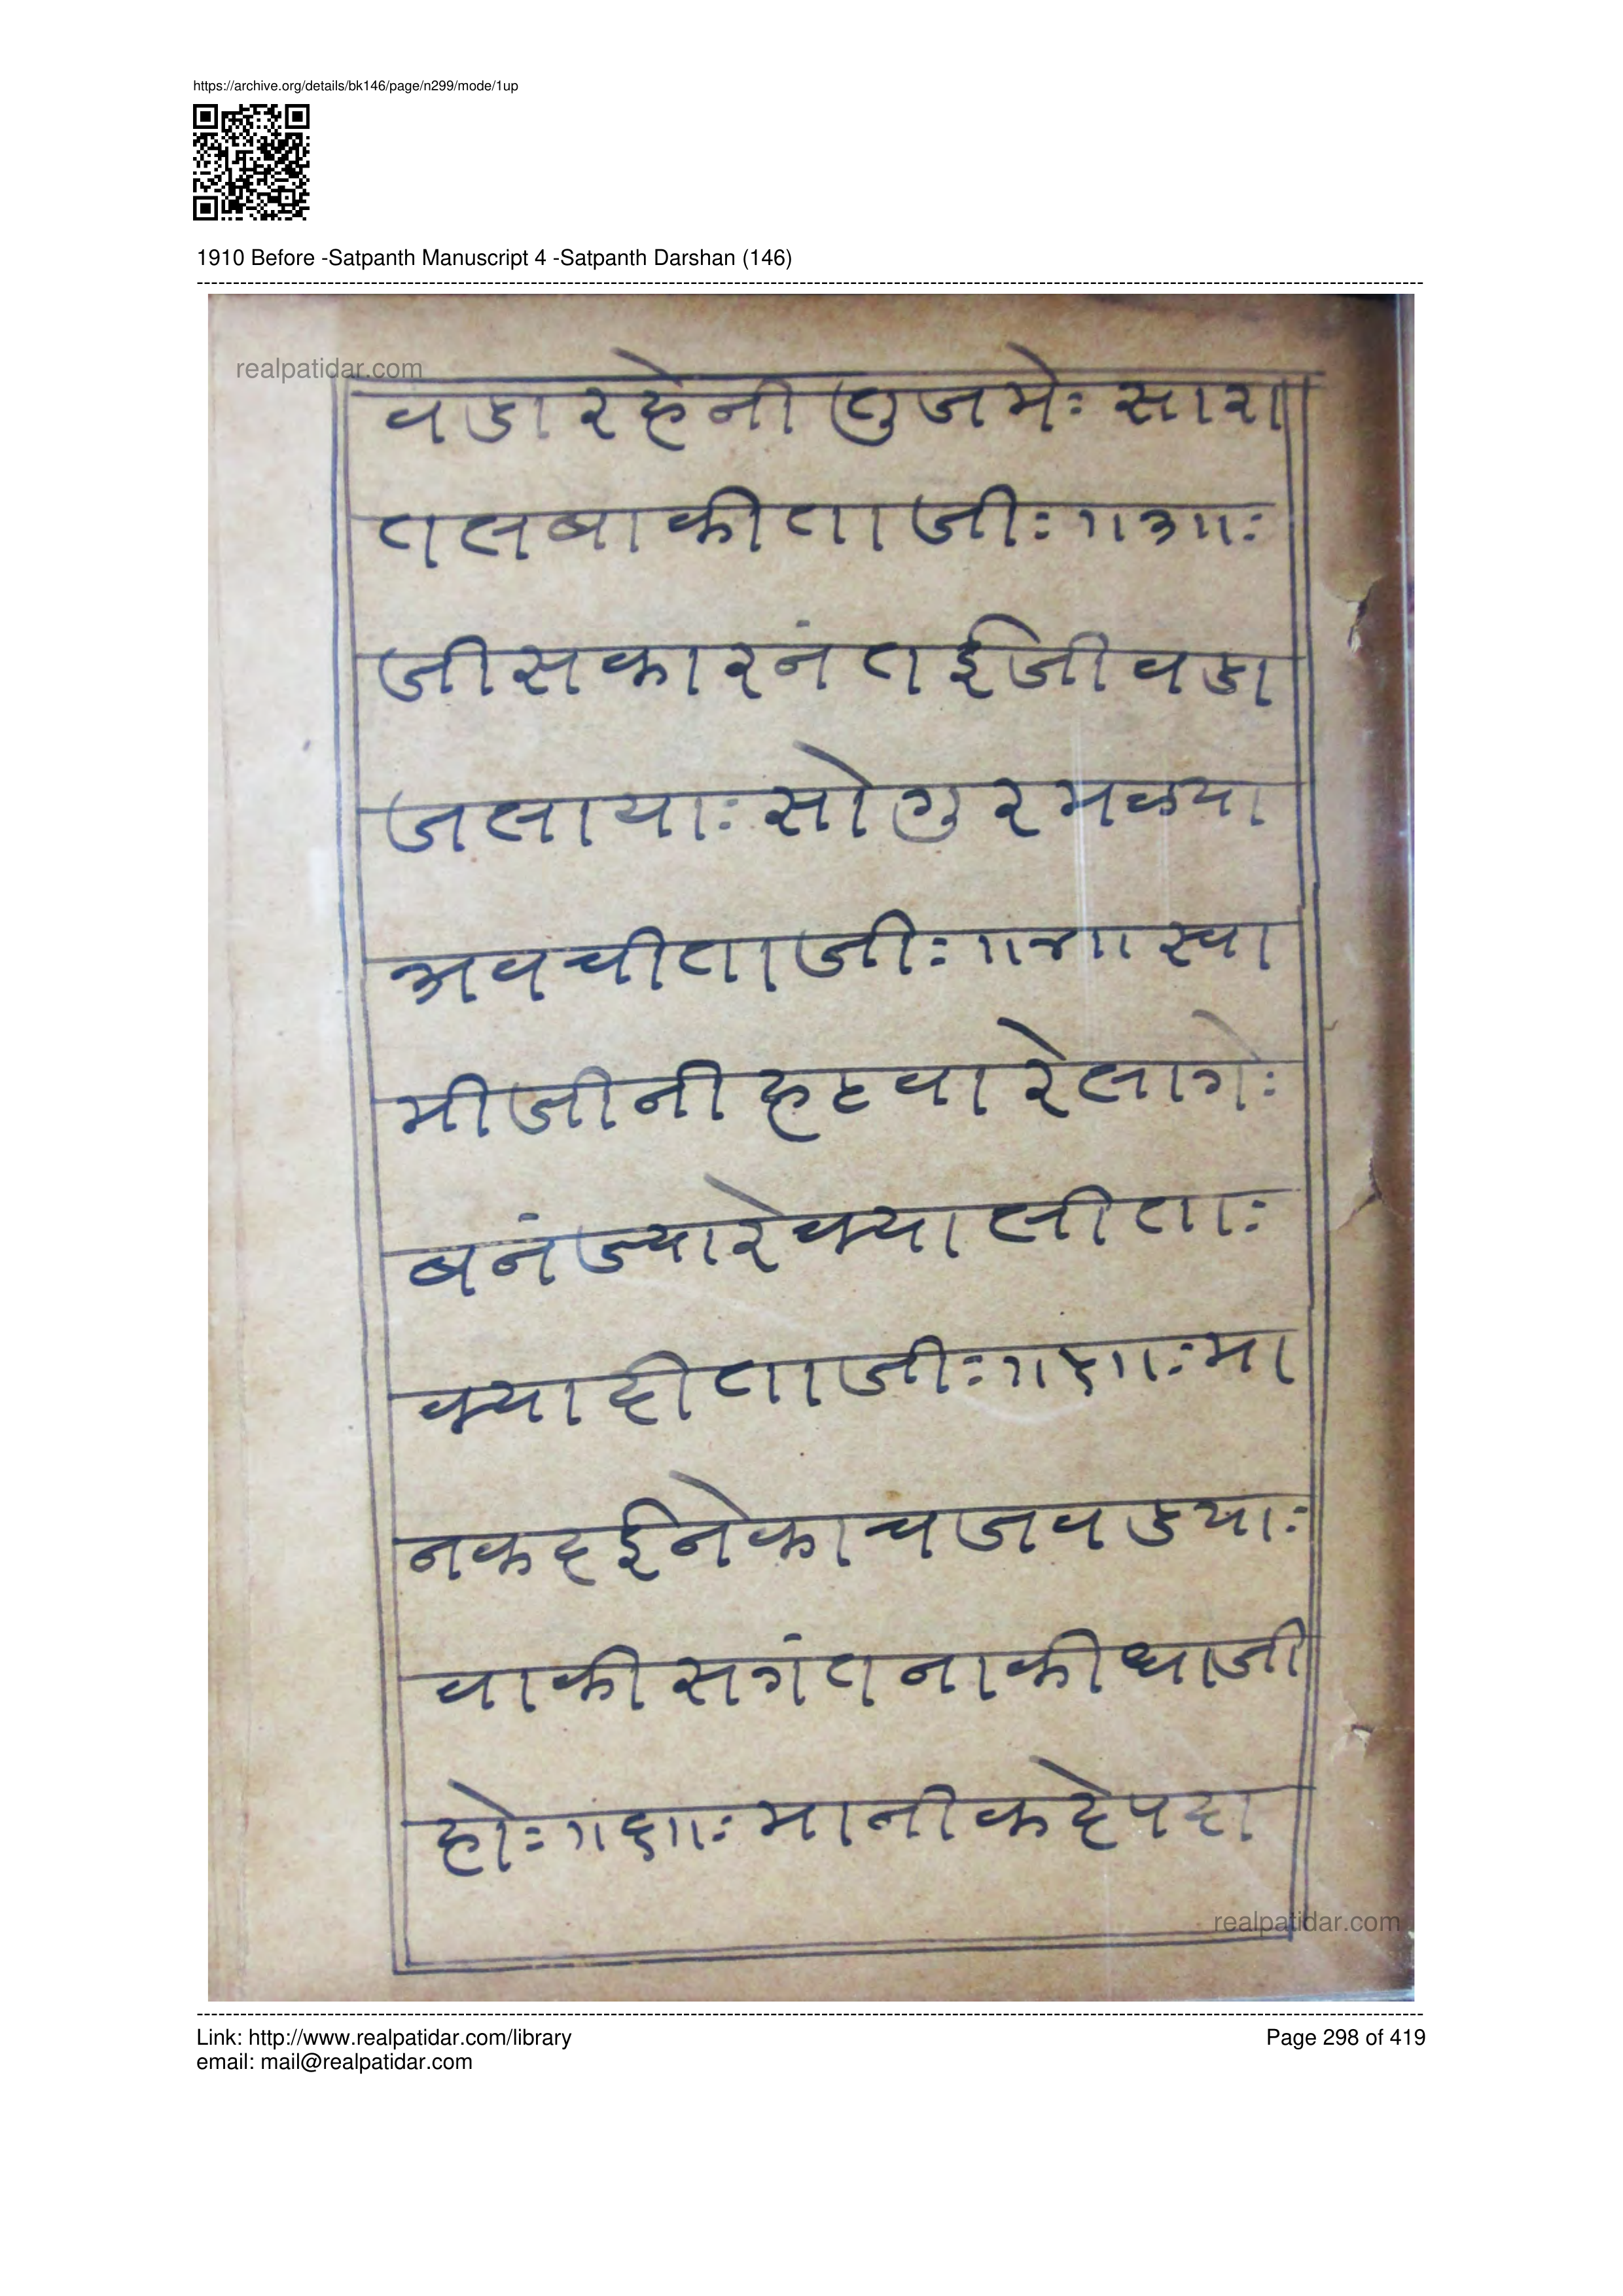 https://archive.org/details/bk146/page/n299/mode/1up
1910 Before -Satpanth Manuscript 4 -Satpanth Darshan (146)
realpatidar.com
वडा रहेनी तुजमेः सारा
तलबाकीताजीः ॥३॥ः
जीसकारनं तईजीवडा
जलायाः सो गुरमळया
अवचीताजीः ॥४॥ स्वा
मीजीनी हटवारे लागेः
बनंज्यारे क्या लीताः
क्या दीताजीः ॥५॥ः मा
नक दईने काच जवडयाः
वाकी सगंत ना कीधाजी
होः ॥६॥ः मानीक हे पदा
realpatidar.com
Link: http://www.realpatidar.com/library
Page 298 of 419
email: mail@realpatidar.com